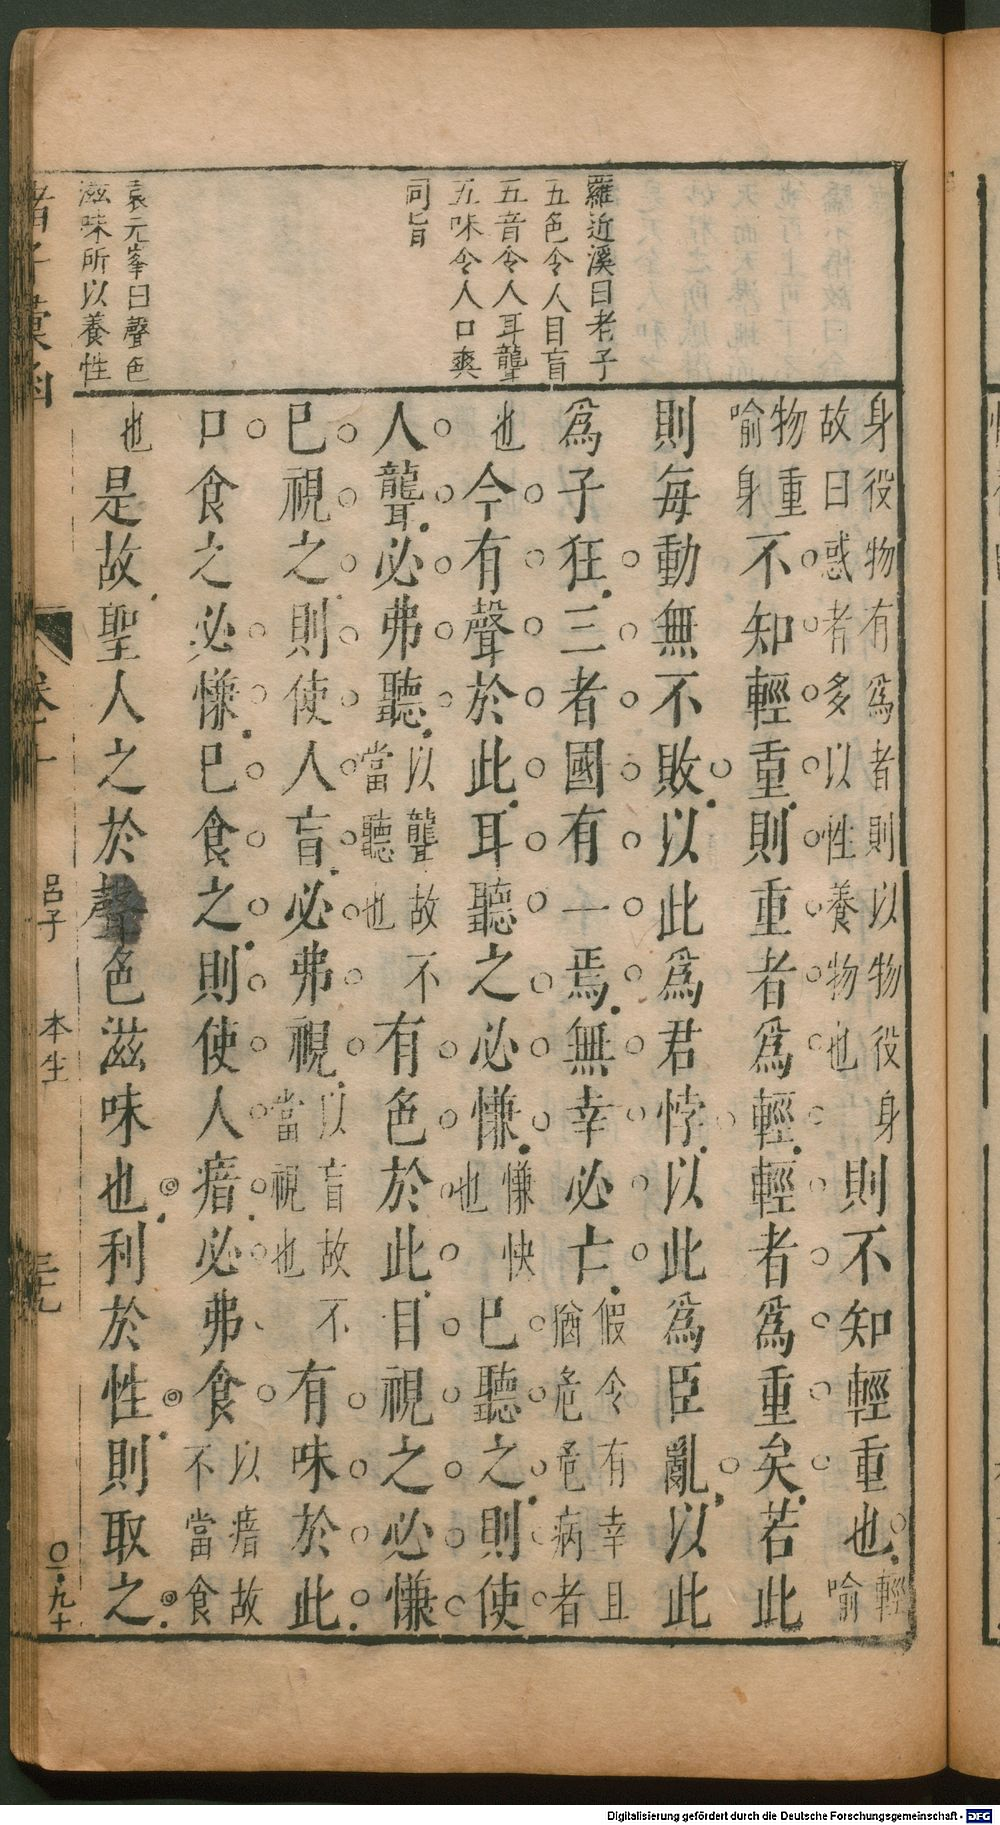 羅近溪曰老子
五色令人目盲
五音令人耳聾
五味令人口爽
同旨
袁元峯曰聲色
滋味所以養性
身役物有爲者則以物役身
故曰惑者多以性養物也
則不知輕重也
輕
喻
物重
喻身
不知輕重則重者爲輕輕者爲重矣若此
則每動無不敗以此爲君悖以此爲臣亂以此
爲子狂三者國有一焉無幸必亡
假令有幸且
猶危危病者
也
今有聲於此耳聽之必慊
慊快
也
已聽之則使
人聾必弗聽
以聾故不
當聽也
有色於此目視之必慊
已視之則使人盲必弗視
以盲故不
當視也
有味於此
口食之必慊已食之則使人瘖必弗食
以瘖故
不當食
也
是故聖人之於聲色滋味也利於性則取之
諸子彙函
卷十
呂子
本生
三九
〇一·九十
Digitalisierung gefördert durch die Deutsche Forschungsgemeinschaft - DFG